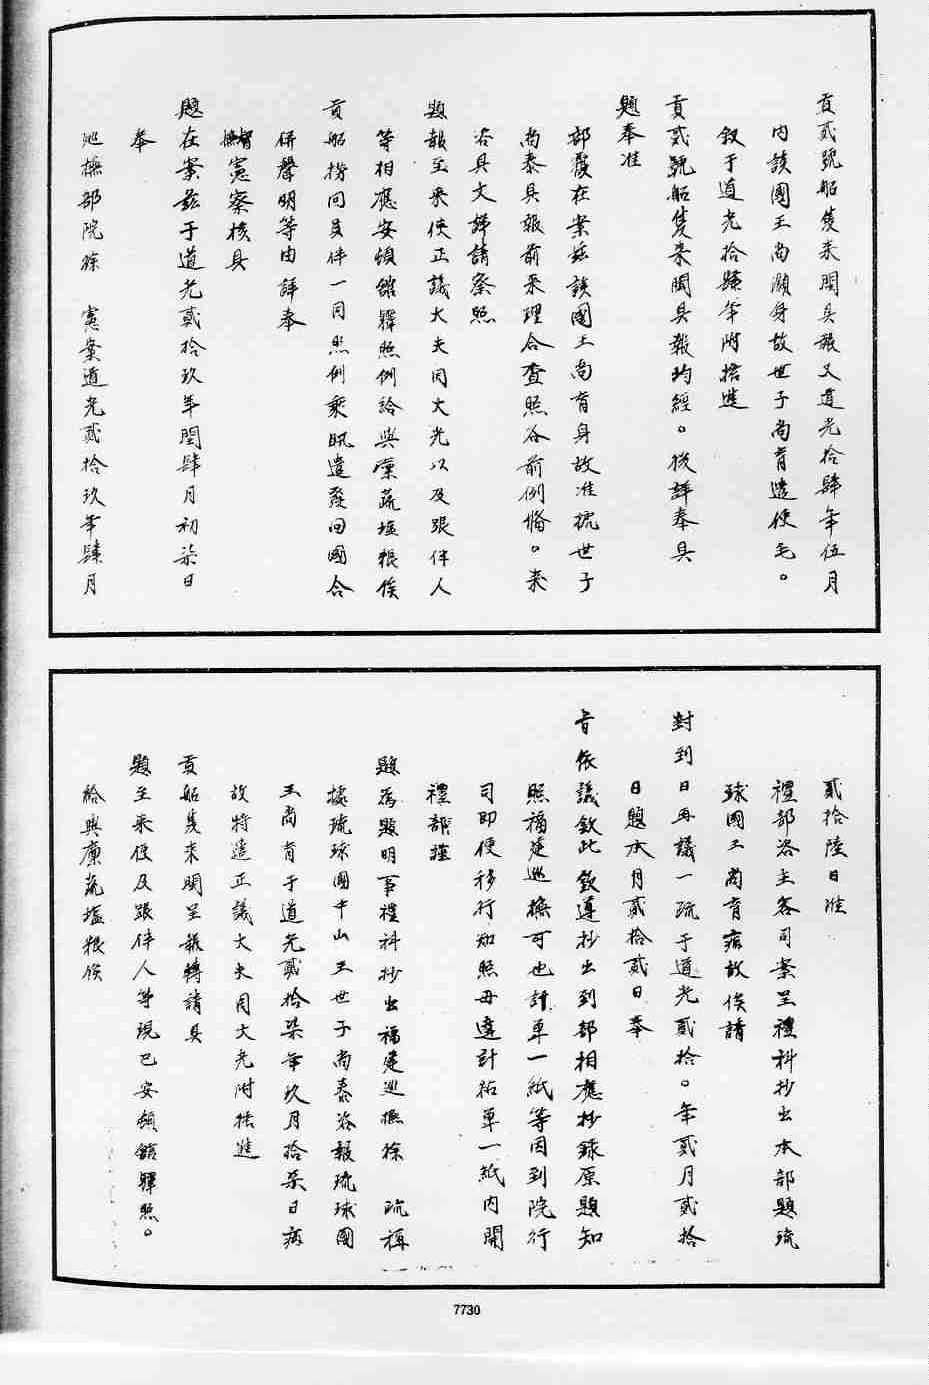 貢貳號船隻來閩具報又道光拾肆年伍月
内該國王尚灝身故世子尚育遣使毛。
叙于道光拾肆年附搭進
貢貳號船隻來閩具報均經。後詳奉具
題奉准
部覆在案茲該國王尚育身故准琉世子
尚泰具報前來理合查照各前例脩。来
咨具文詳請察照
題報至来使正議大夫周大光以及跟伴人
等相應安頓館驛照例給與廪蔬塩粮俟
貢船摘同員伴一同照例乘駕遣發回國合
併聲明等由詳奉
撫督憲察核具
題在案茲于道光貳拾玖年閏肆月初柒日
奉
廵撫部院徐 憲案道光貳拾玖年肆月
貳拾陸日准
禮部咨主客司案呈禮科抄出本部題琉
球國王尚育病故俟請
封到日再議一疏于道光貳拾。年貳月貳拾
日題本月貳拾貳日奉
旨依議欽此欽遵抄出到部相應抄錄原題知
照福建廵撫可也計單一紙等因到院行
司即便移行知照毋違計粘單一紙内開
禮部謹
題為題明事禮科抄出福建廵撫徐 疏稱
據琉球國中山王世子尚泰咨報琉球國
王尚育于道光貳拾柒年玖月拾柒日病
故特遣正議大夫周大光附搭進
貢船隻来閩呈報轉請具
題至来使及跟伴人等現已安頓館驛照。
給與廪蔬塩粮俟
7730